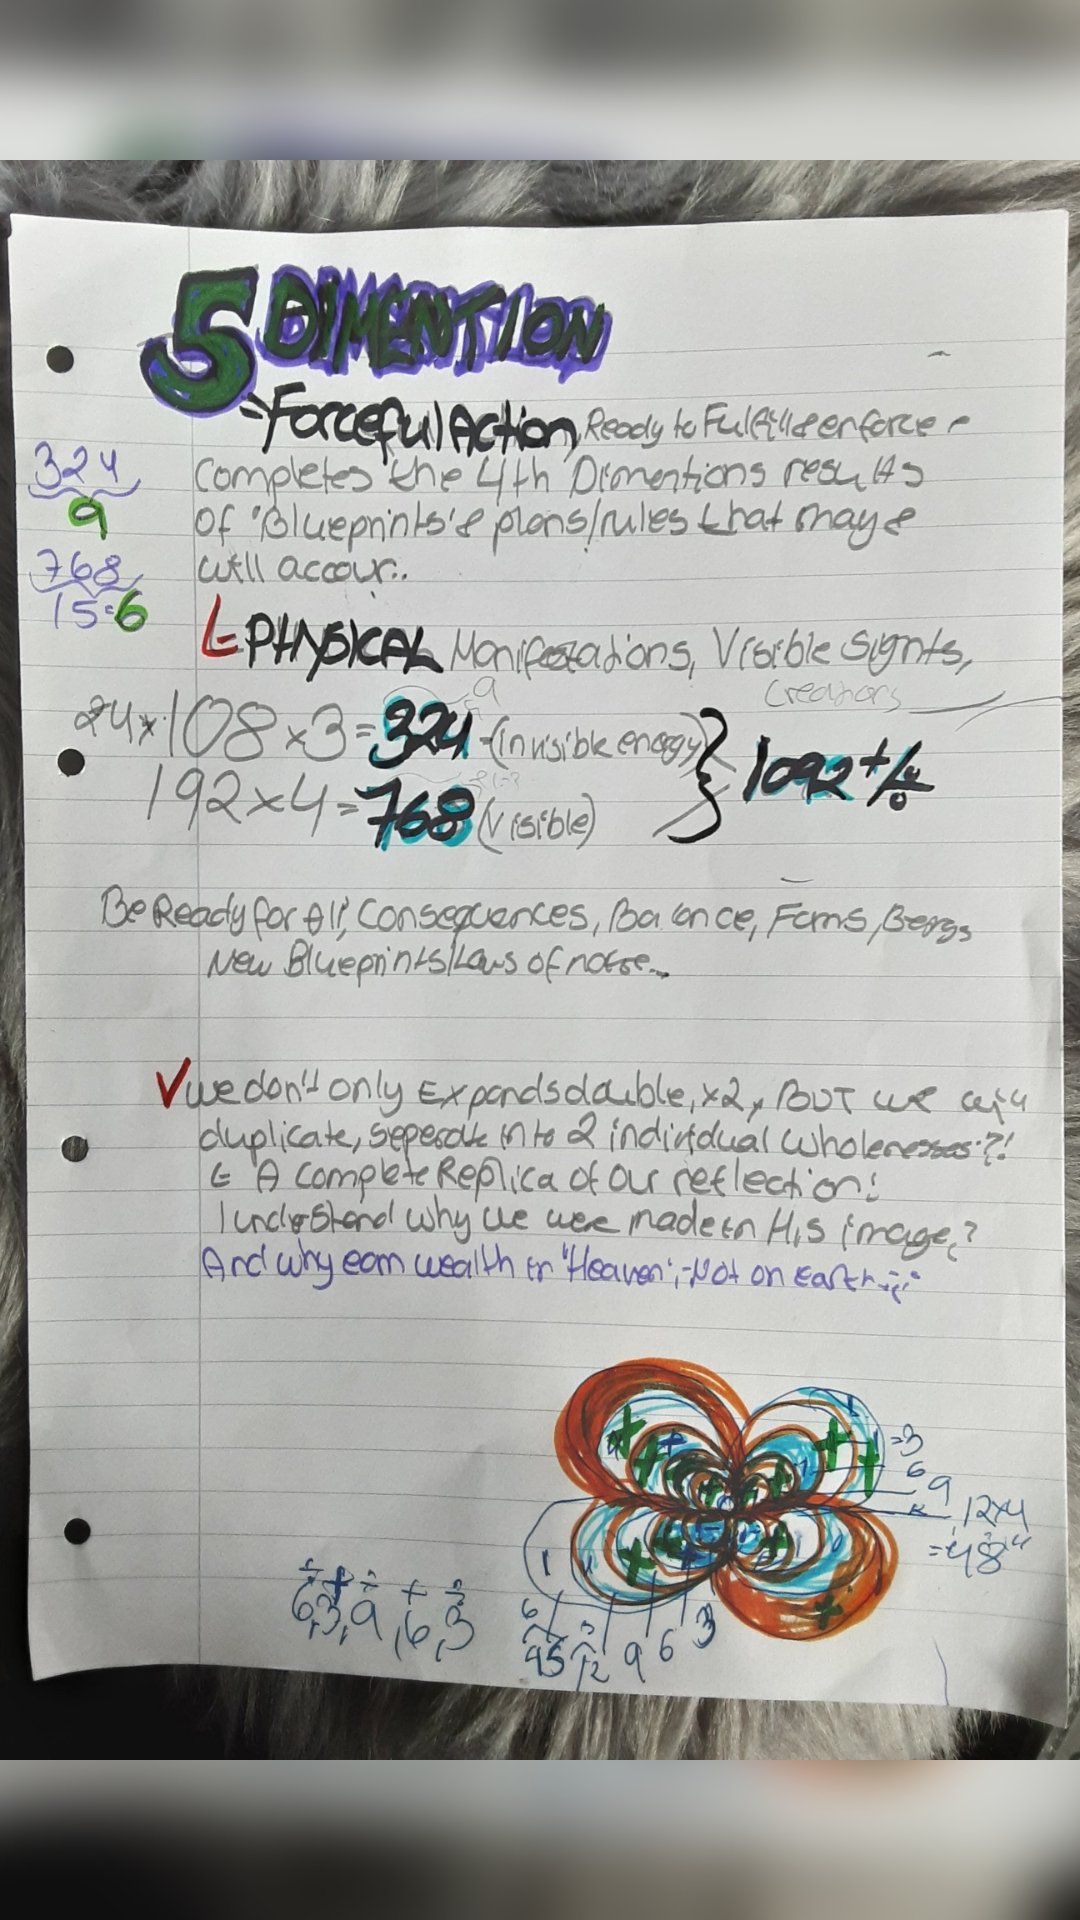 5 DIMENTION
- Forceful Action, Ready to Fulfill & enforce &
324
completes the 4th Dimentions results
9
Of "Blueprints" & plans/rules that may &
768
will accour..
15=6
PHYSICAL Manifestations, Visible Signts,
Creations
9
24x108x3=324-(invisible energy)
192x4=768(visible)
1092 +/÷
Be Ready for All, Consequences, Balance, Forms, Beings
New Blueprints/Laws of
we don't only Expands double, x2, BUT we
duplicate, seperate into 2 individual wholenesses?!
A complete Replica of our reflection!
I understand why we were made in His image,?
And why earn wealth in "Heaven", -Not on Earth
=3
6
9
12x4
=48
÷ + ÷ + ÷
6,3,9,6,3
6
45 12 9 6 3